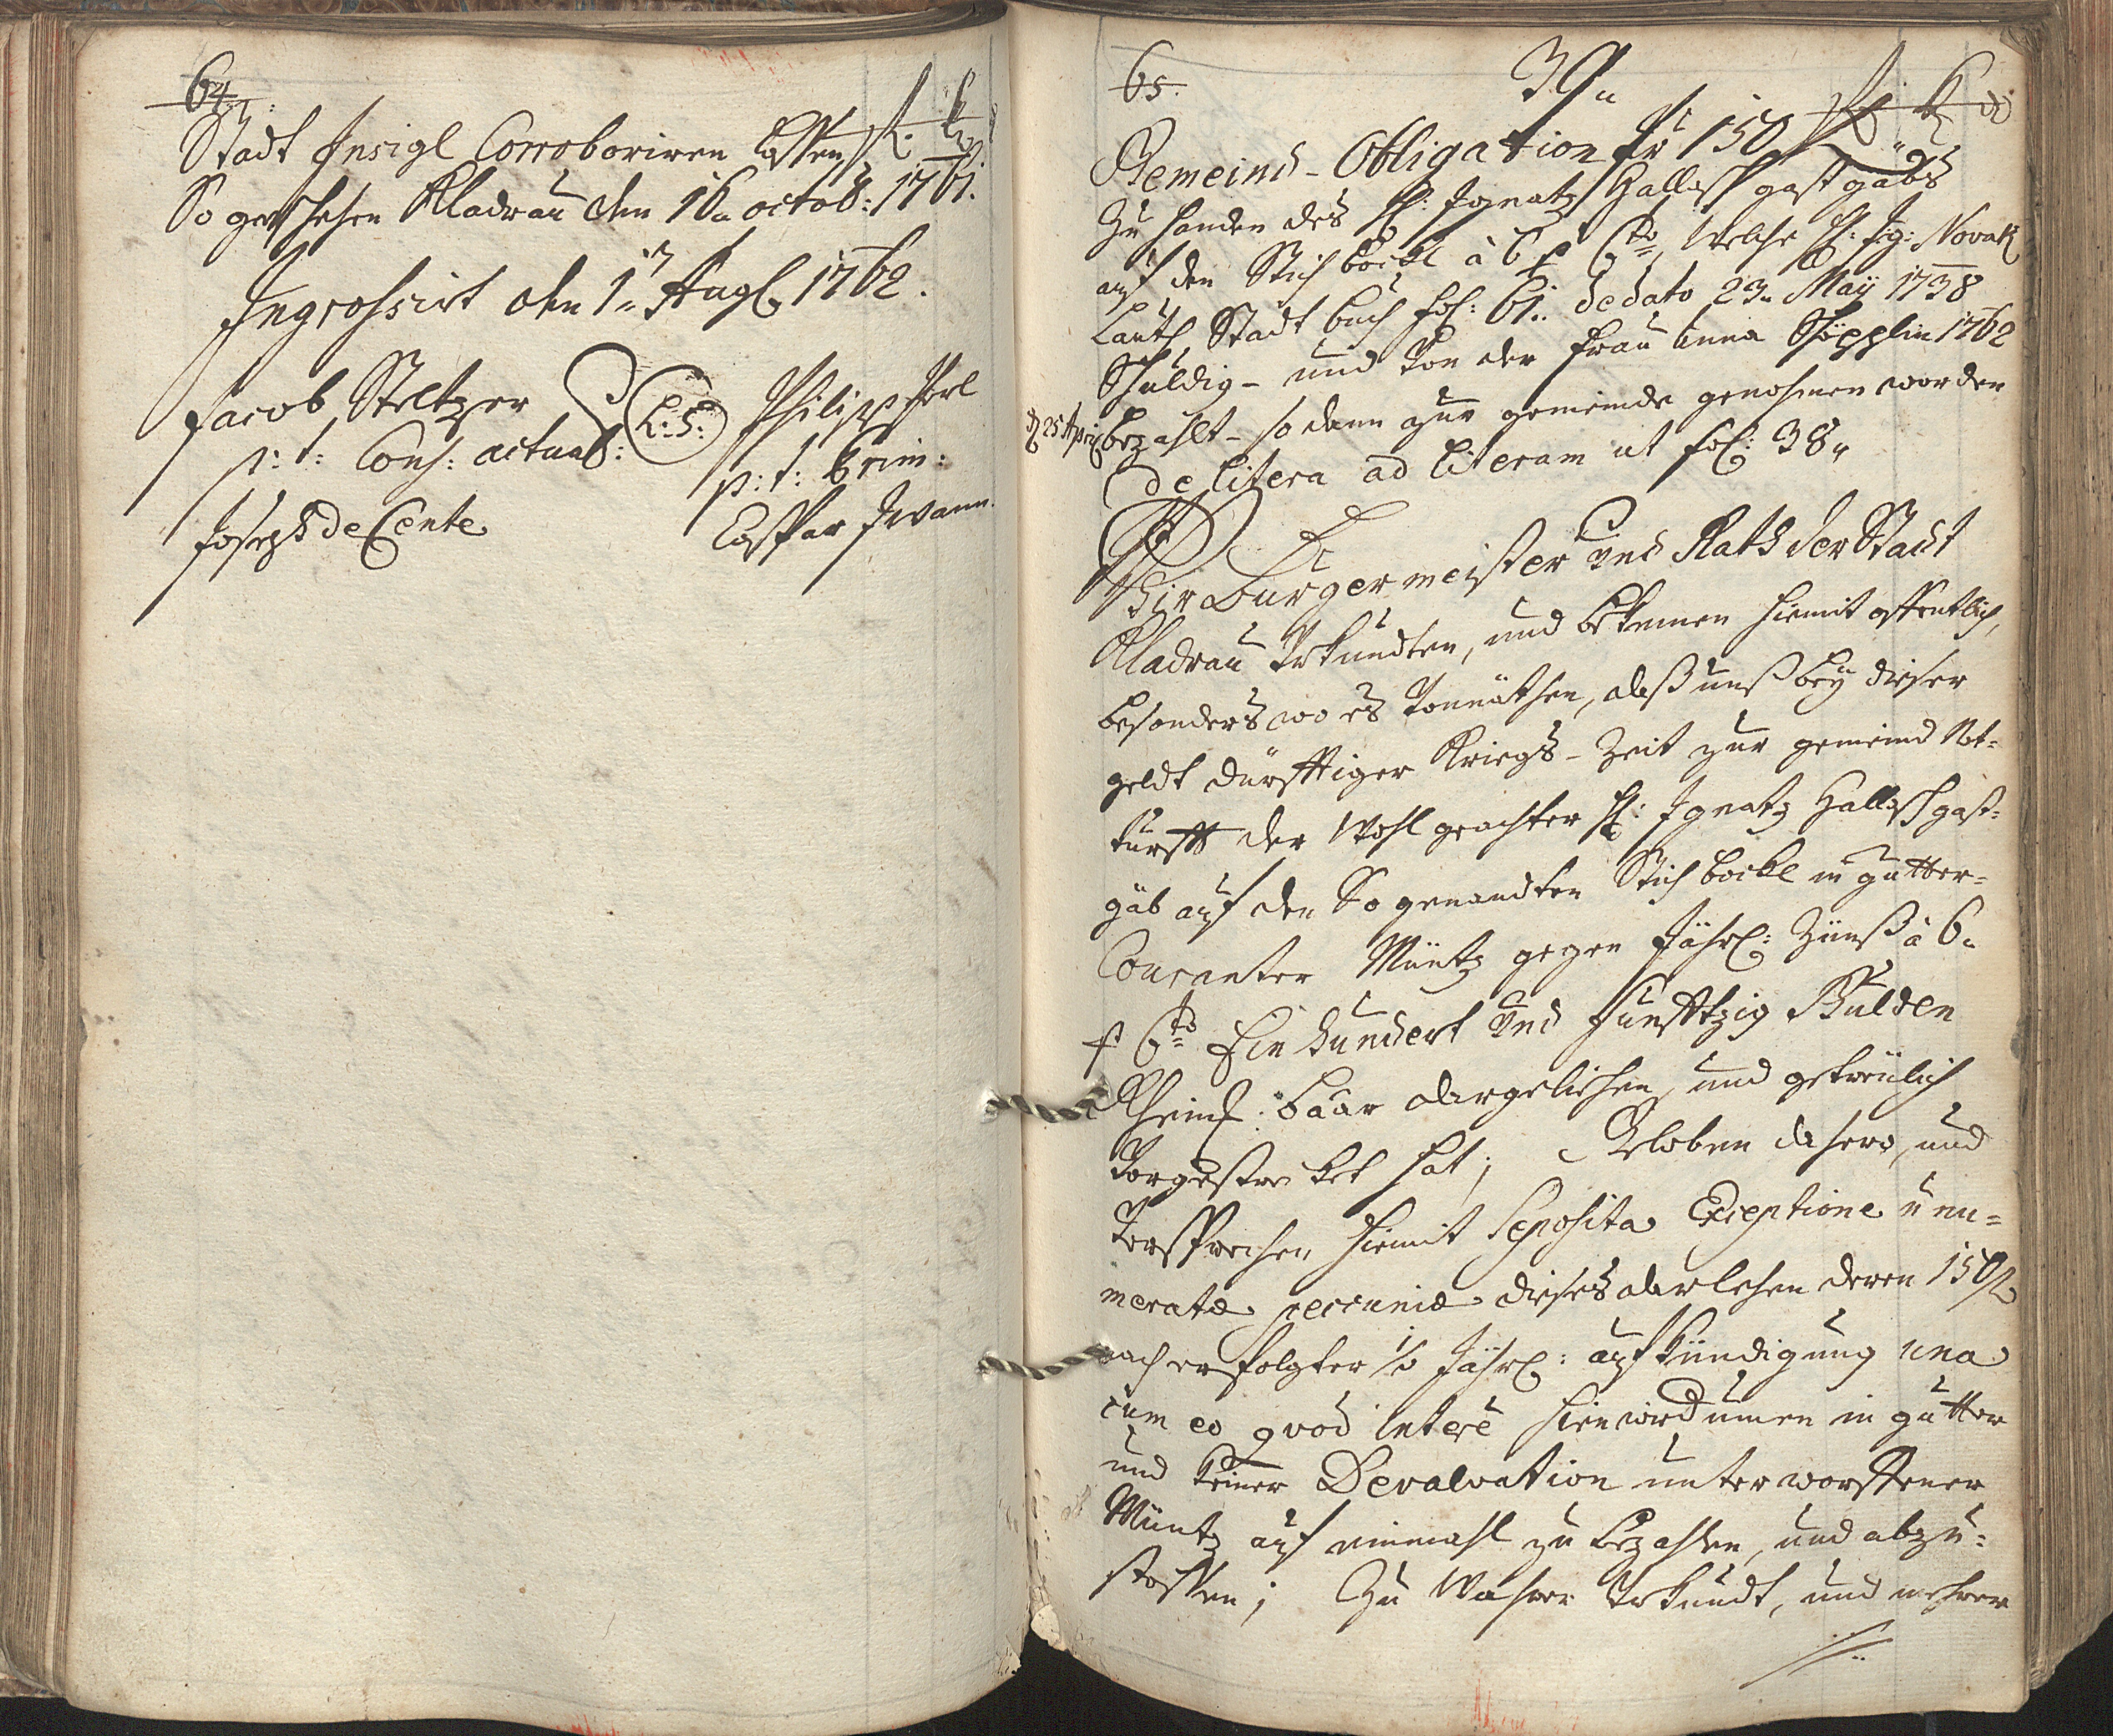 64.
fl. k
Stadt Insigl Corroboriren lassen,
So geschehen Kladrau den 16. octob: 1761.
Ingrossirt den 1. Aug. 1762.
Jacob Steltzer
p: t: Cons: actual:
L: S:
Philipp
p: t: Prim:
Joseph de Cente
Caspar
65.
39.
fl k d
Gemeind-Obligation pr 150 fl
Zu handen des H: Ignatz Hallasch gastgäbs
auf den Stich böckl à 6 p Cto, welche H: Ig: Novak
Lauth Stadt buch fol: 61. de dato 23. Maÿ 1738
Schuldig- und von der Frau Anna 1762
d 25 April bezahlt- so dann zur gemeinde genohmen worden
de litera ad literam ut fol: 38.
Wir Burgermeister und Rath der Stadt
Kladrau Urkundten, und bekennen hiemit offentlich,
besonders wo es vonnöthen, daß unß beÿ dieser
geldt dürfftiger Kriegs-Zeit zur gemeind Not=
turfft der Wohl geachter H: Ignatz Hallasch gast=
gäb auf den So genandten Stich böckl in gutter=
Couranter Müntz gegen Jährl: Zünß à 6.
p Cto Ein hundert und Funfftzig Gulden
Rheinl: baar dargeliehen, und getreülich
Vorgestrecket hat; Geloben dahero, und
Versprechen hiemit Seposita Exceptione nu=
meratæ pecuniæ dieses darlehen deren 150 fl
nach erfolgter ½ Jährl: aufkündigung una
cum eo quod interē hierwiderumen in gutter
und keiner Devalvation unterworffener
Müntz auf einmahl zu bezahlen, und abzu=
stossen; Zu Wahrer Urkundt, und mehrer